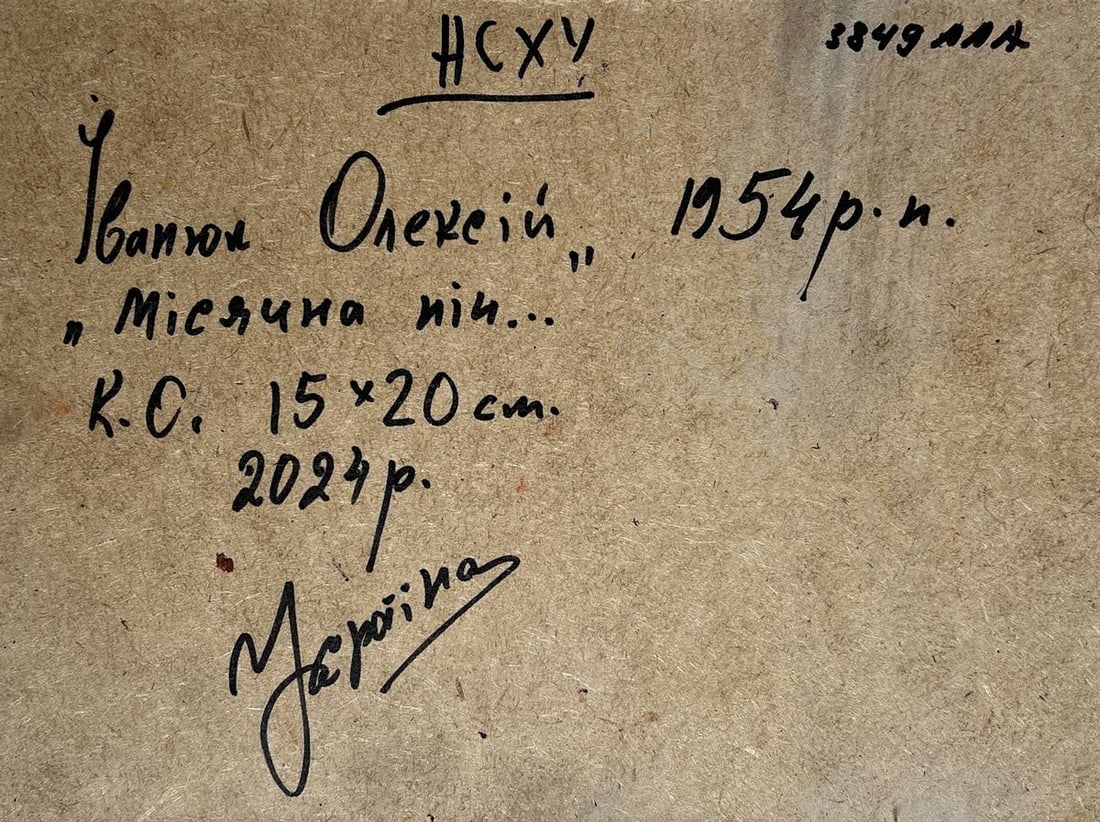 НСХУ
3849
Іванюк Олексій 1954 р.н.
"Місячна ніч..."
К.О. 15×20 см.
2024 р.
Україна